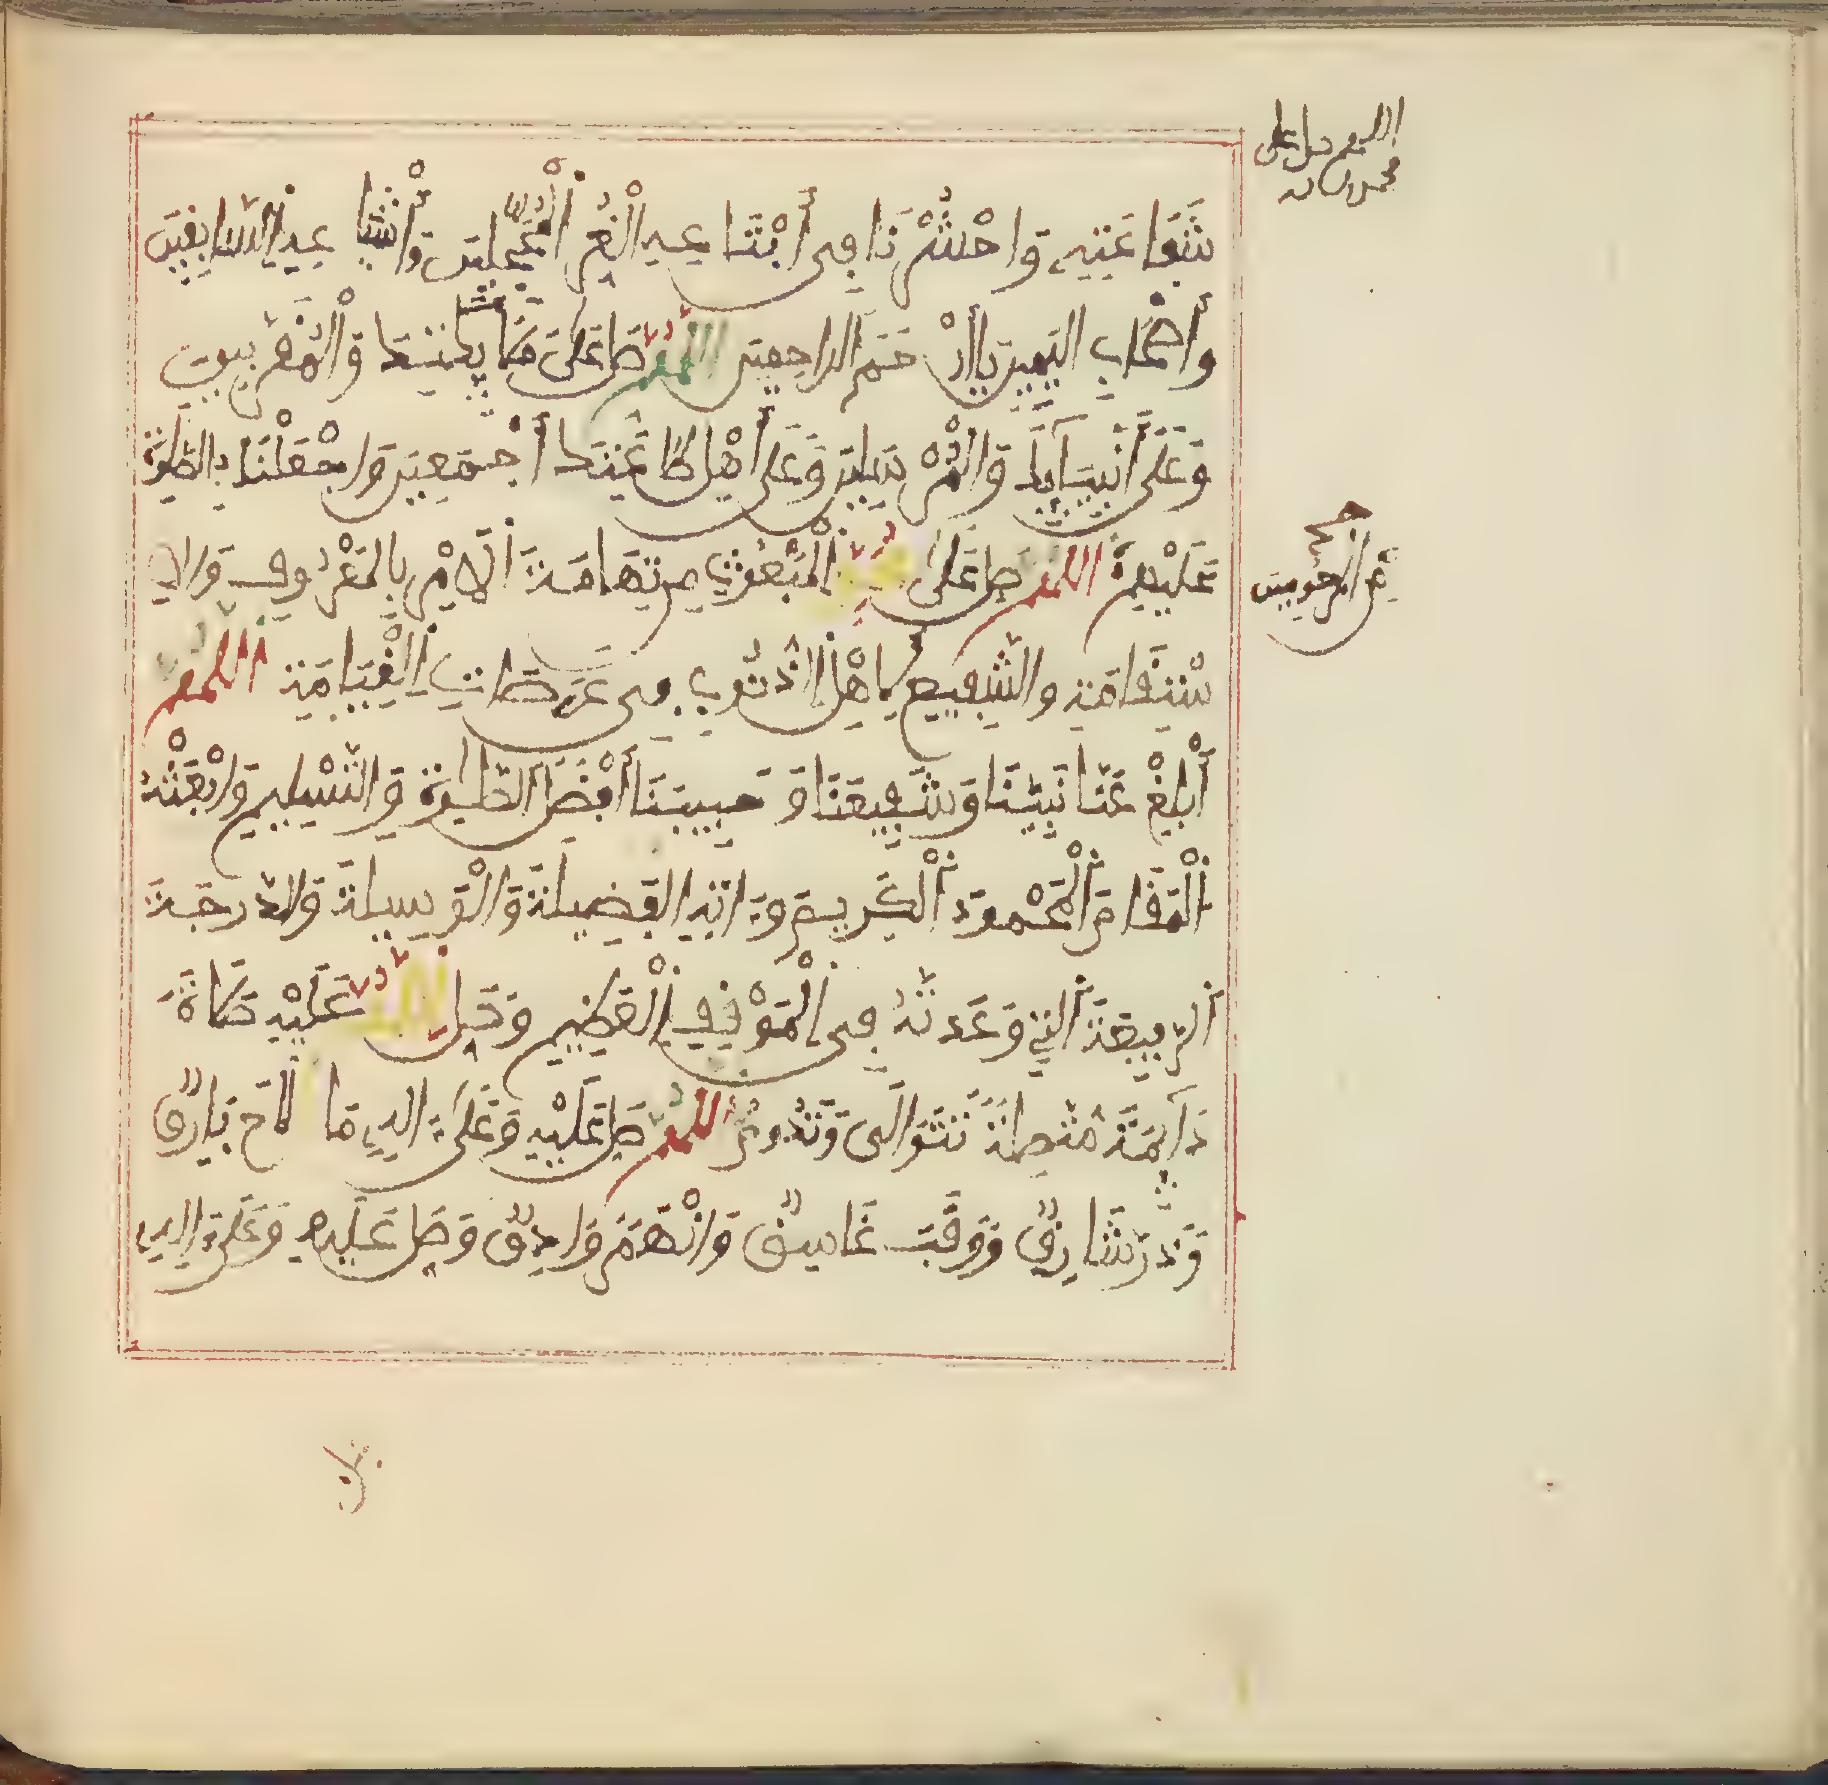 اللهم صل على
محمد وسلم
شَفَاعَتِهِ وَاحْشُرْنَا فِى أَتْبَاعِهِ الْغُرِّ الْمُحَجَّلِينَ وَأَشْيَاعِهِ السَّابِقِينَ
وَأَصْحَابِ الْيَمِينِ يَا أَرْحَمَ الرَّاحِمِينَ اللَّهُمَّ صَلِّ عَلَى مَلَائِكَتِكَ وَالْمُقَرَّبِينَ
وَعَلَى أَنْبِيَائِكَ وَالْمُرْسَلِينَ وَعَلَى أَهْلِ طَاعَتِكَ أَجْمَعِينَ وَاجْعَلْنَا بِالصَّلَوةِ
عَلَيْهِمْ مِنَ الْمَرْحُومِينَ
صح
اللَّهُمَّ صَلِّ عَلَى مُحَمَّدٍ الْمَبْعُوثِ مِنْ تِهَامَةَ الْآمِرِ بِالْمَعْرُوفِ وَالِا
سْتِقَامَةِ وَالشَّفِيعِ لِأَهْلِ الذُّنُوبِ فِى عَرَصَاتِ الْقِيَامَةِ اللَّهُمَّ
أَبْلِغْ عَنَّا نَبِيَّنَا وَشَفِيعَنَا وَحَبِيبَنَا أَفْضَلَ الصَّلَوةِ وَالتَّسْلِيمِ وَابْعَثْهُ
الْمَقَامَ الْمَحْمُودَ الْكَرِيمَ وَءَاتِهِ الْفَضِيلَةَ وَالْوَسِيلَةَ وَالدَّرَجَةَ
الرَّفِيعَةَ الَّتِي وَعَدْتَهُ فِى الْمَوْقِفِ الْعَظِيمِ وَصَلِّ اللَّهُمَّ عَلَيْهِ صَلَاةً
دَآئِمَةً مُتَّصِلَةً تَتَوَالَى وَتَدُومُ اللَّهُمَّ صَلِّ عَلَيْهِ وَعَلَى ءَالِهِ مَا لَاحَ بَارِقٌ
وَذَرَّ شَارِقٌ وَوَقَبَ غَاسِقٌ وَانْهَمَرَ وَادِقٌ وَصَلِّ عَلَيْهِ وَعَلَى ءَالِهِ